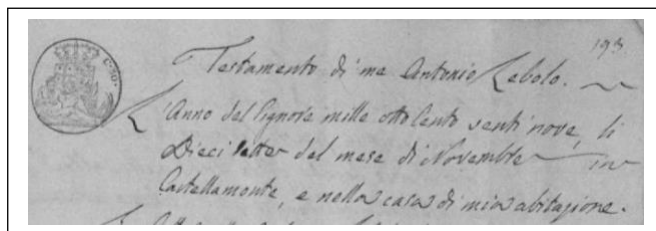 193.
Testamento di me Antonio Lebolo.
L'Anno del Signore mille otto cento venti nove, li
Dieci sette del mese di Novembre in
Castellamonte, e nella casa di mia abitazione.